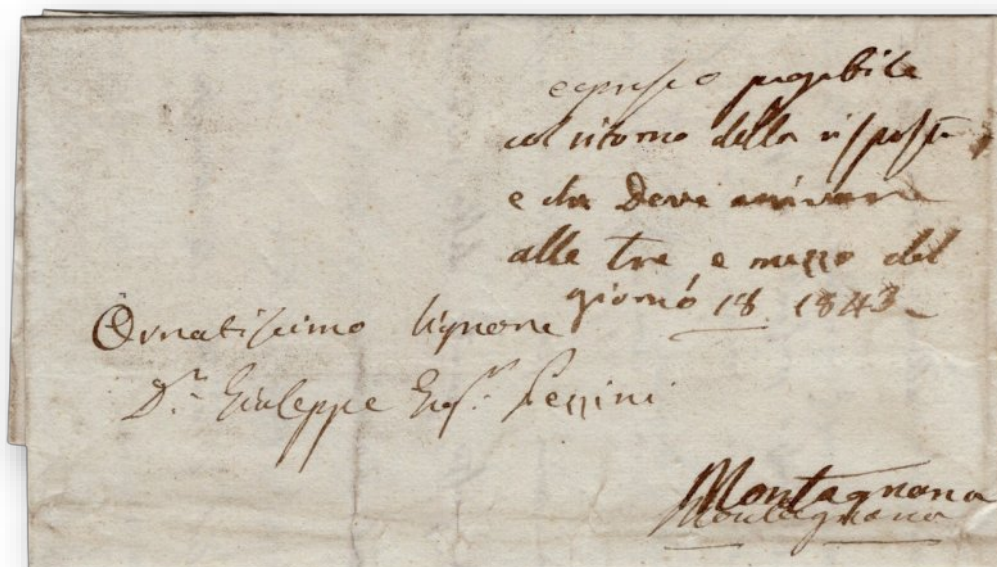 espresso pagabile
col ritorno della risposta
e che Deve arrivare
alle tre e mezzo del
giorno 18 1843
Ornatissimo Signore
D.r Giuseppe
Montagnana
Montagnana